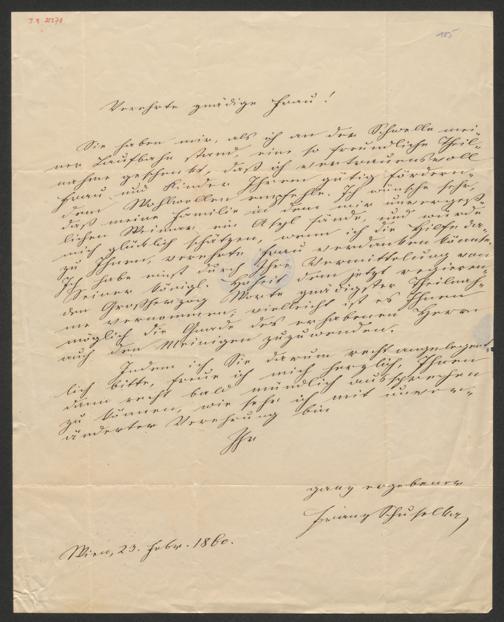 J.N. 22278
185
Verehrte gnädige Frau!
Sie haben mir, als ich an der Schwelle mei-
ner Laufbahn stand, eine so freundliche Theil-
nahme geschenkt, daß ich vertrauensvoll
Frau und Kinder Ihrem gütig fördern-
dem Wohlwollen empfehle. Ich wünsche sehr,
daß meine Familie in dem mir unvergeß-
lichen Weimar ein Asyl fände, und würde
mich glücklich schätzen, wenn ich die Hilfe da-
zu Ihnen, verehrte Frau verdanken könnte.
Ich habe einst durch Ihre Vermittelung von
Seiner königl. Hoheit dem jetzt regieren-
den Großherzog Worte gnädigster Theilnah-
me vernommen, vielleicht ist es Ihnen
möglich die Gnade des erhabenen Herrn
auch den Meinigen zuzuwenden.
Indem ich Sie darum recht angelegent-
lich bitte, freue ich mich herzlich, Ihnen
dann recht bald mündlich aussprechen
zu können, wie sehr ich mit unver-
änderter Verehrung bin
Ihr
ganz ergebener
Franz Schuselka
Wien, 23. Febr. 1860.